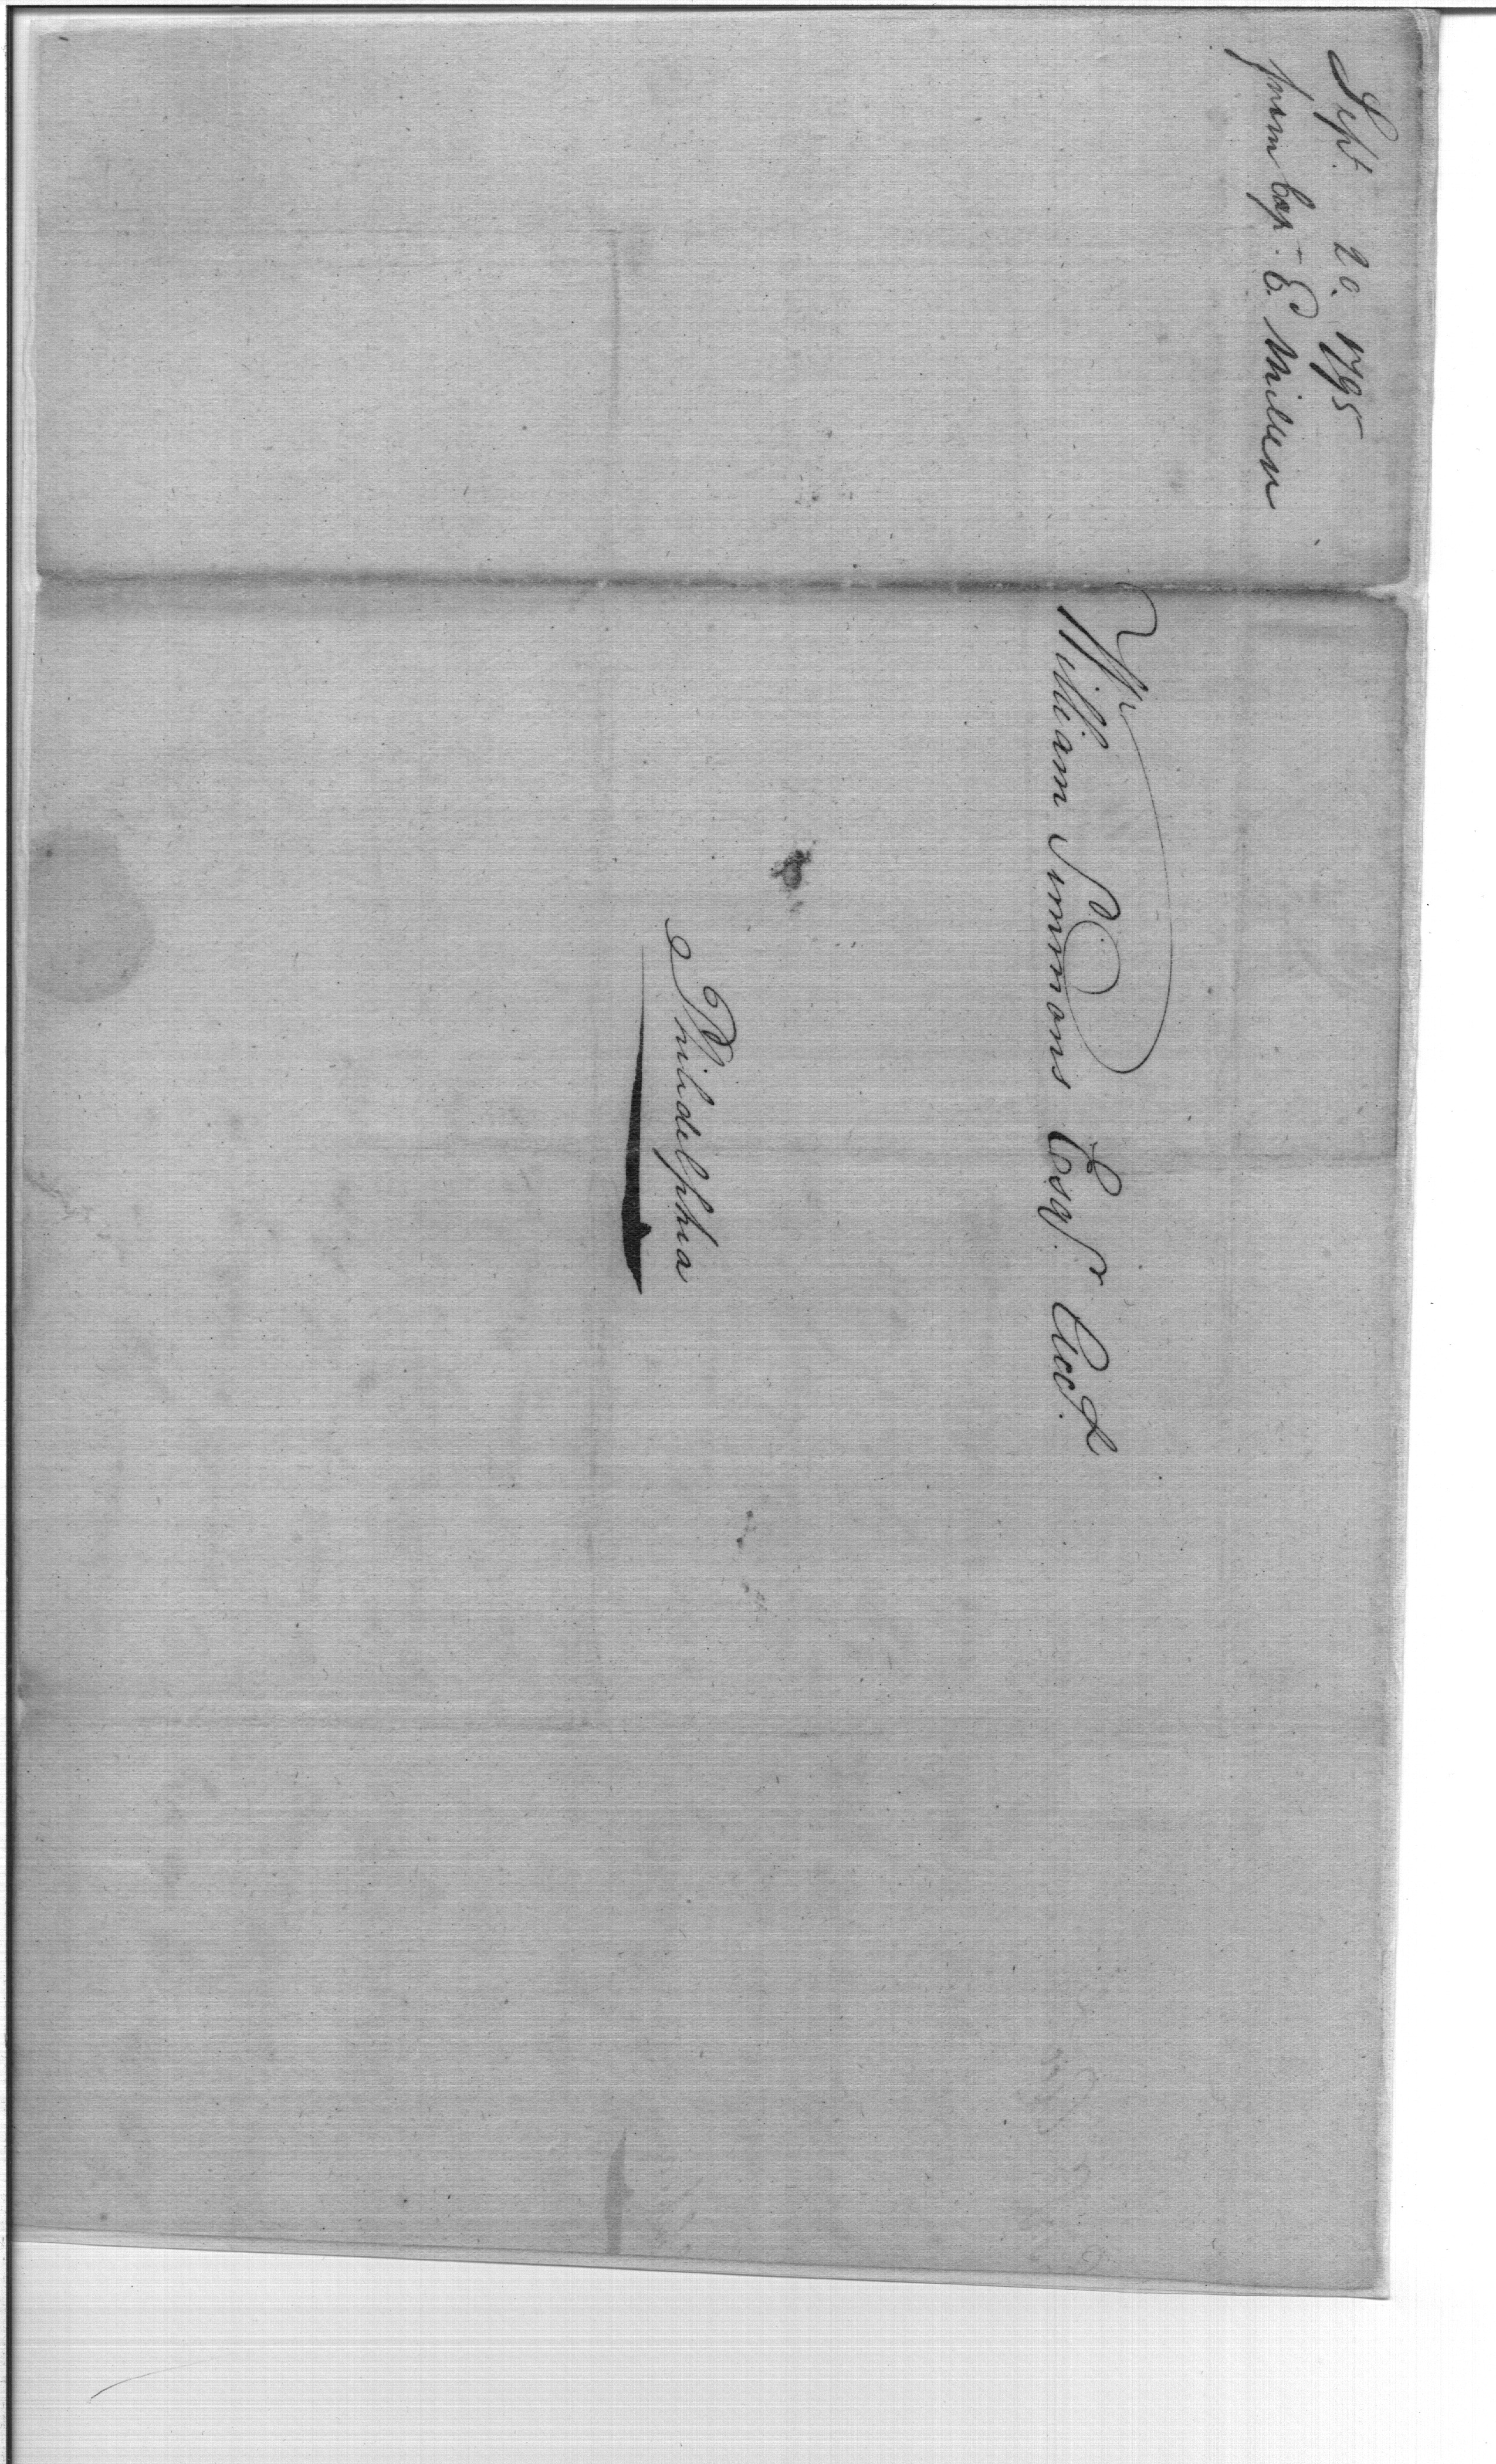 Sept. 20. 1795
from Cap. E Miller
William Simmons Esqr. Acct.
Philidelphia